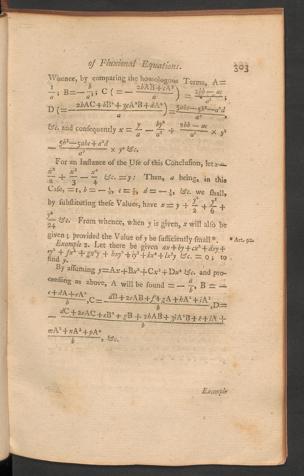 of Fluxional Equations. 303
Whence, by comparing the homologous Terms, A =
1/a; B = − b/a³; C ( = − (2bAB + cA³)/a ) = (2bb − ac)/a⁵;
D ( = − (2bAC + bB² + 3cA²B + dA⁴)/a ) =
&c. and consequently x = y/a − by²/a³ + (2bb − ac)/a⁵ × y³
− (5b³ − 5abc + a²d)/a⁷ × y⁴ &c.
For an Instance of the Use of this Conclusion, let x −
x²/2 + x³/3 − x⁴/4 &c. = y: Then, a being, in this
Case, = 1, b = − ½, c = ⅓, d = − ¼, &c. we shall,
by substituting these Values, have x = y + y²/2 + y³/6 +
y⁴/24 &c. From whence, when y is given, x will also be
given; provided the Value of y be sufficiently small*. * Art.
Example 2. Let there be given ax + by + cx² + dxy +
ey² + fx³ + gx²y + hxy² + iy³ + kx⁴ + lx³y &c. = 0; to
find y.
By assuming y = Ax + Bx² + Cx³ + Dx⁴ &c. and pro-
ceeding as above, A will be found = − a/b, B = −
(c + dA + eA²)/b, C = −
, D =
−
, &c.
Example